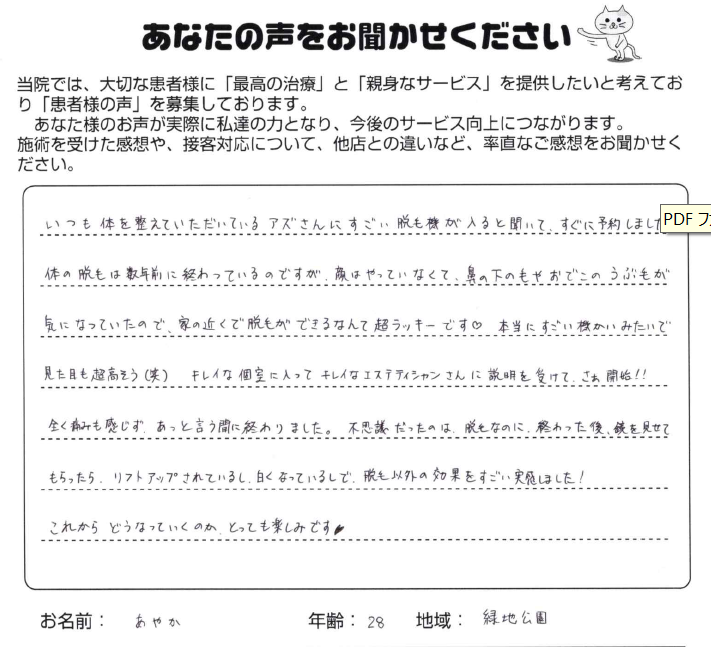 あなたの声をお聞かせください
当院では、大切な患者様に「最高の治療」と「親身なサービス」を提供したいと考えてお
り「患者様の声」を募集しております。
あなた様のお声が実際に私達の力となり、今後のサービス向上につながります。
施術を受けた感想や、接客対応について、他店との違いなど、率直なご感想をお聞かせく
ださい。
いつも体を整えていただいているアズさんにすごい脱毛機が入ると聞いて、すぐに予約しました
PDF フ
体の脱毛は数年前に終わっているのですが、顔はやっていなくて、鼻の下のもやおでこのうぶ毛が
気になっていたので、家の近くで脱毛ができるなんて超ラッキーです♡ 本当にすごい機かいみたいで
見た目も超高そう(笑) キレイな個室に入ってキレイなエステティシャンさんに説明を受けて、さぁ開始!!
全く痛みも感じず、あっと言う間に終わりました。不思議だったのは、脱毛なのに、終わった後、鏡を見せて
もらったら、リフトアップされているし、白くなっているしで、脱毛以外の効果をすごい実感しました!
これからどうなっていくのか、とっても楽しみです
お名前: あやか 年齢: 28 地域: 緑地公園